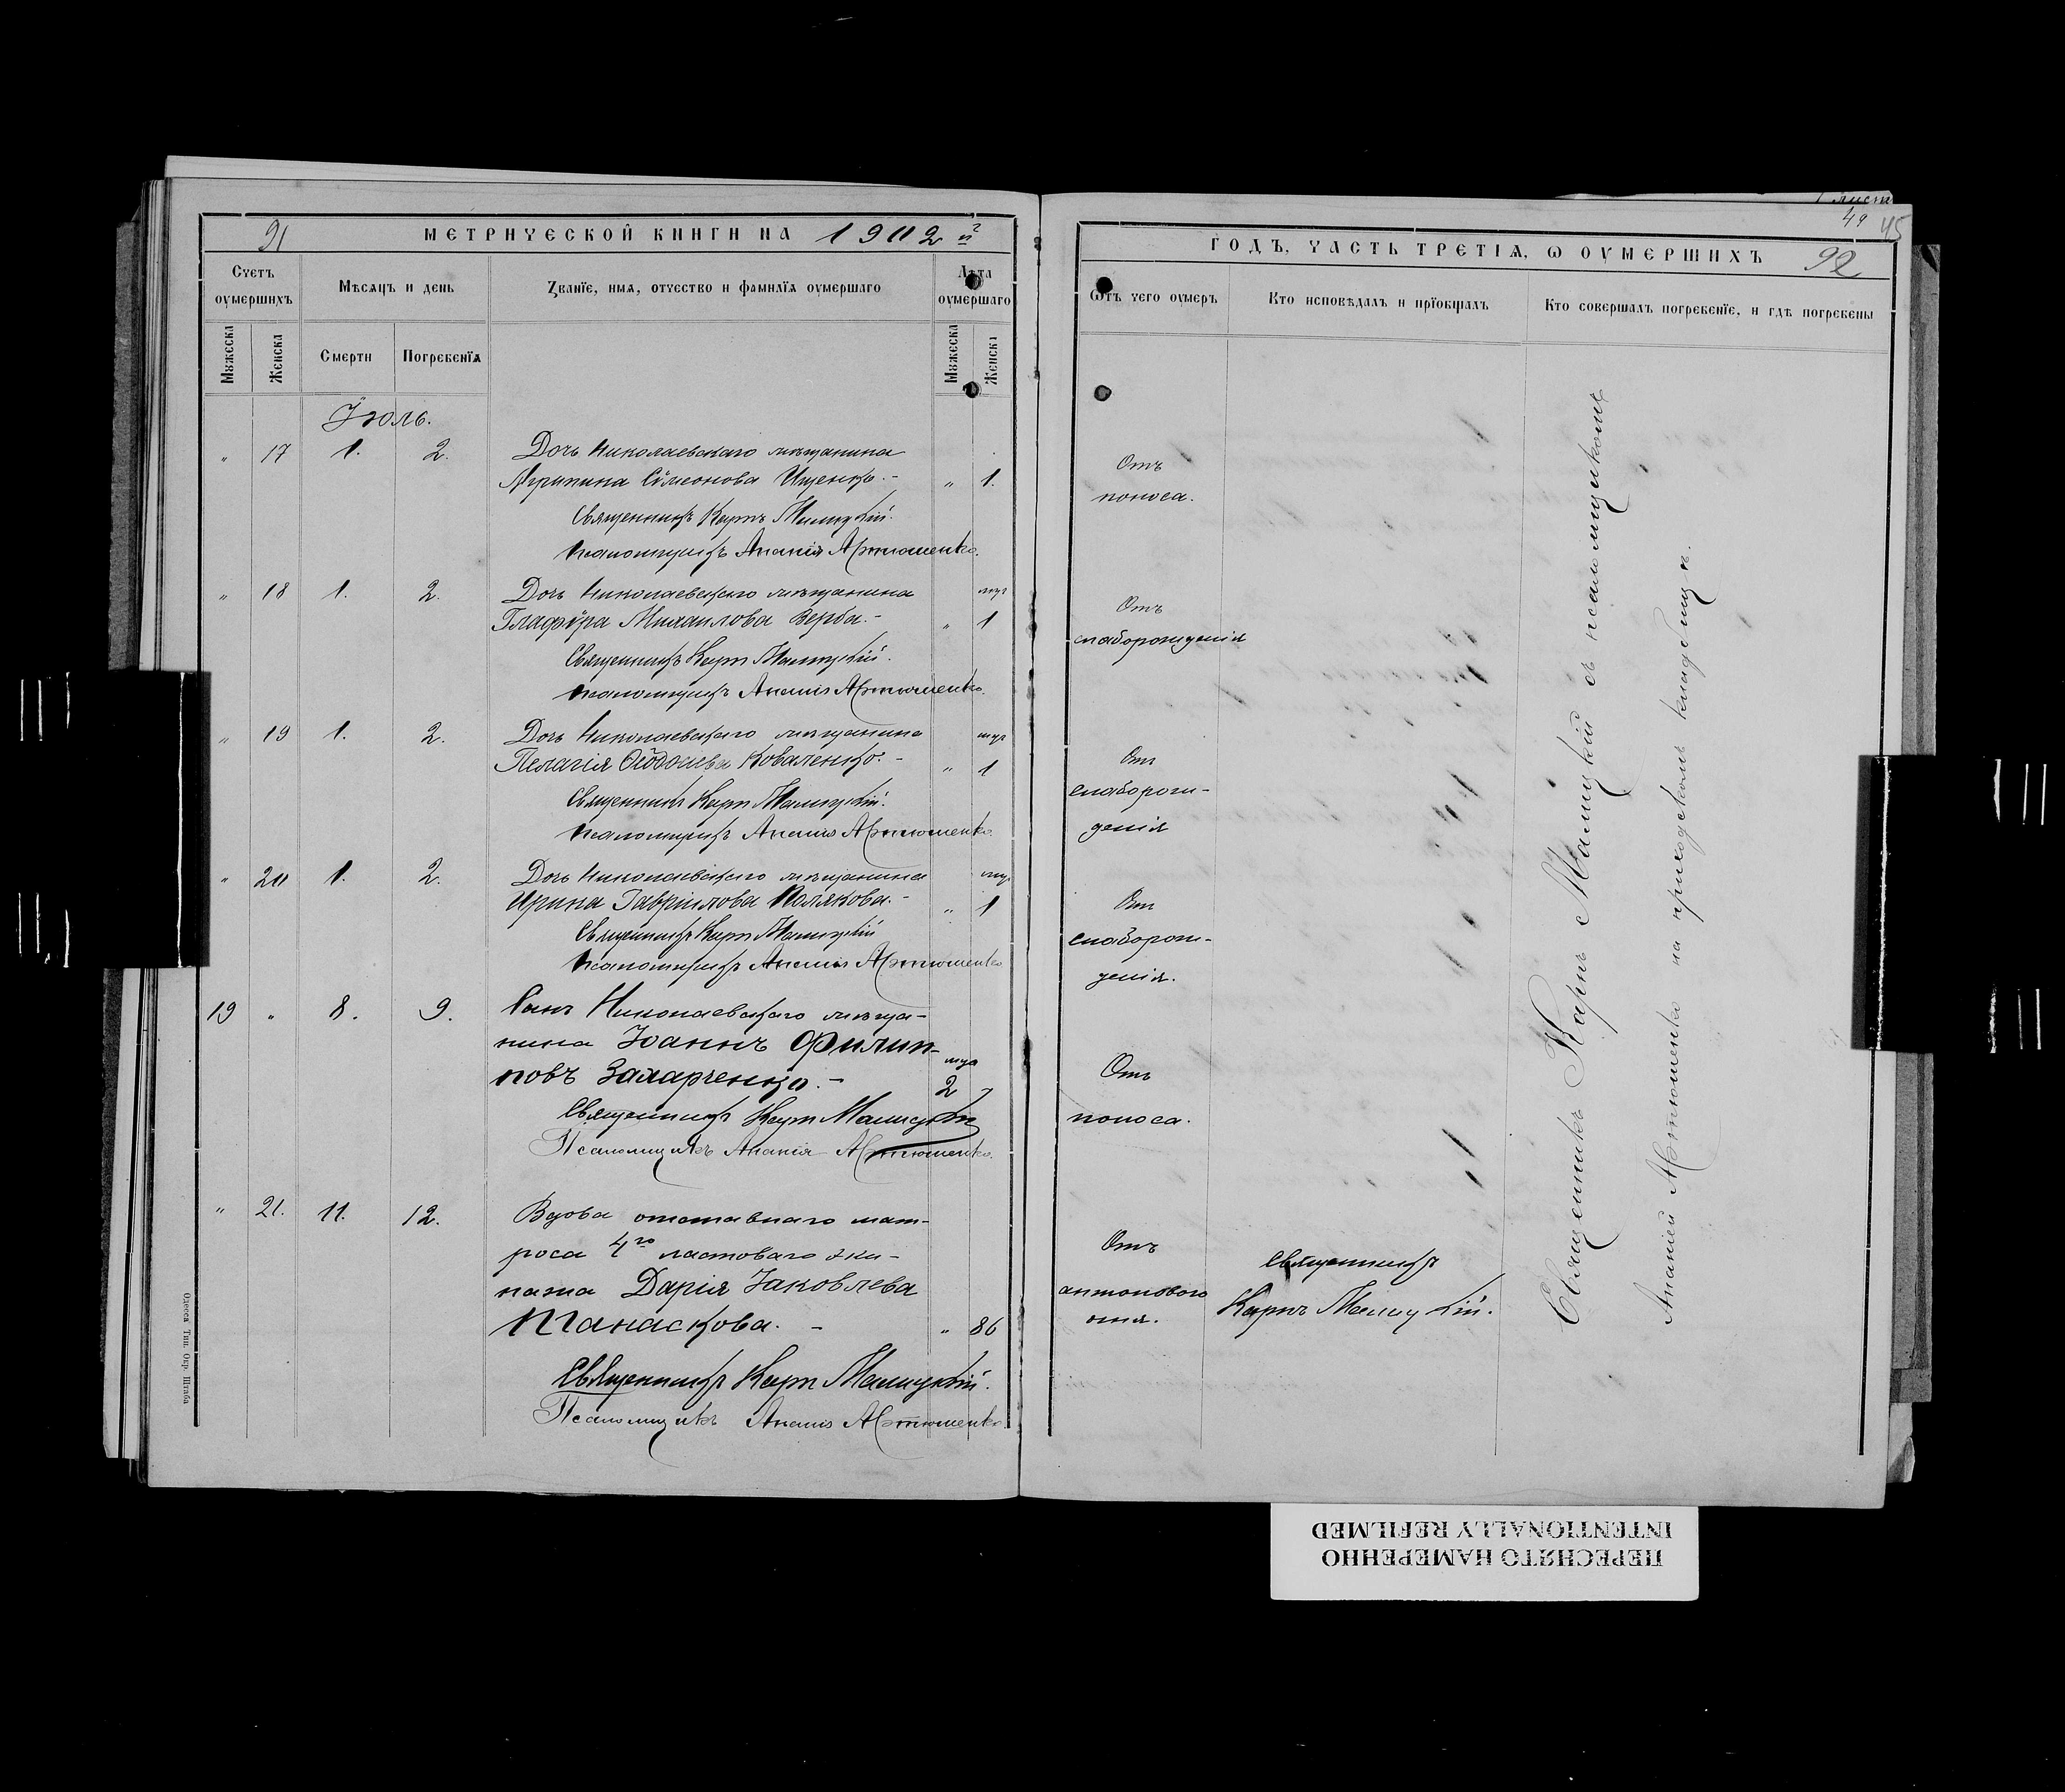 91
МЕТРИЧЕСКОЙ КНИГИ НА 1902 й
Счетъ оумершихъ
Мѣсяцъ и день
Званїе, имя, отчество и фамилїя оумершаго
Лѣта оумершаго
Мужеска
Женска
Смерти
Погребенїя
Мужеска
Женска
Іюль.
" 17 1. 2. Дочь Николаевскаго мѣщанина
Агрипина Сімеонова Ищенко.- " 1.
Священникъ Карпъ Малицкій.
Псаломщикъ Ананія Артюшенко.
" 18 1. 2. Дочь Николаевскаго мѣщанина
Глафѵра Михаилова Верба.- " 1
Священникъ Карпъ Малицкій.
Псаломщикъ Ананія Артюшенко.
" 19 1. 2. Дочь Николаевскаго мѣщанина
Пелагія Коваленко.- " 1
Священникъ Карпъ Малицкій.
Псаломщикъ Ананія Артюшенко.
" 20 1. 2. Дочь Николаевскаго мѣщанина
Ирина Гавріилова Полякова.- " 1
Священникъ Карпъ Малицкій
Псаломщикъ Ананія Артюшенко
19 " 8. 9. Сынъ Николаевскаго мѣща-
нина Іоаннъ Филип-
повъ Захарченко.- 2
Священникъ Карпъ Малицкій
Псаломщикъ Ананія Артюшенко.
" 21. 11. 12. Вдова отставнаго мат-
роса 4го ластоваго эки-
пажа Дарія Іаковлева
Танаскова.- " 86
Священникъ Карпъ Малицкій.
Псаломщикъ Ананія Артюшенко.
Одесса Тип. Окр. Штаба
49 45
ГОДЪ, ЧАСТЬ ТРЕТІЯ, Ѡ ОУМЕРШИХЪ
92
Ѿтъ чего оумеръ
Кто исповѣдалъ и прїобщалъ
Кто совершалъ погребенїе, и гдѣ погребены
Отъ
поноса.
Отъ
слаборожденія
Отъ
слаборож-
денія
Отъ
слаборож-
денія.
Отъ
поноса.
Отъ
антонового
огня.
Священникъ
Карпъ Малицкій.
Священникъ Карпъ Малицкій съ псаломщикомъ
Ананіей Артюшенко на приходскомъ кладбищѣ.
ПЕРЕСНЯТО НАМЕРЕННО
INTENTIONALLY REFILMED